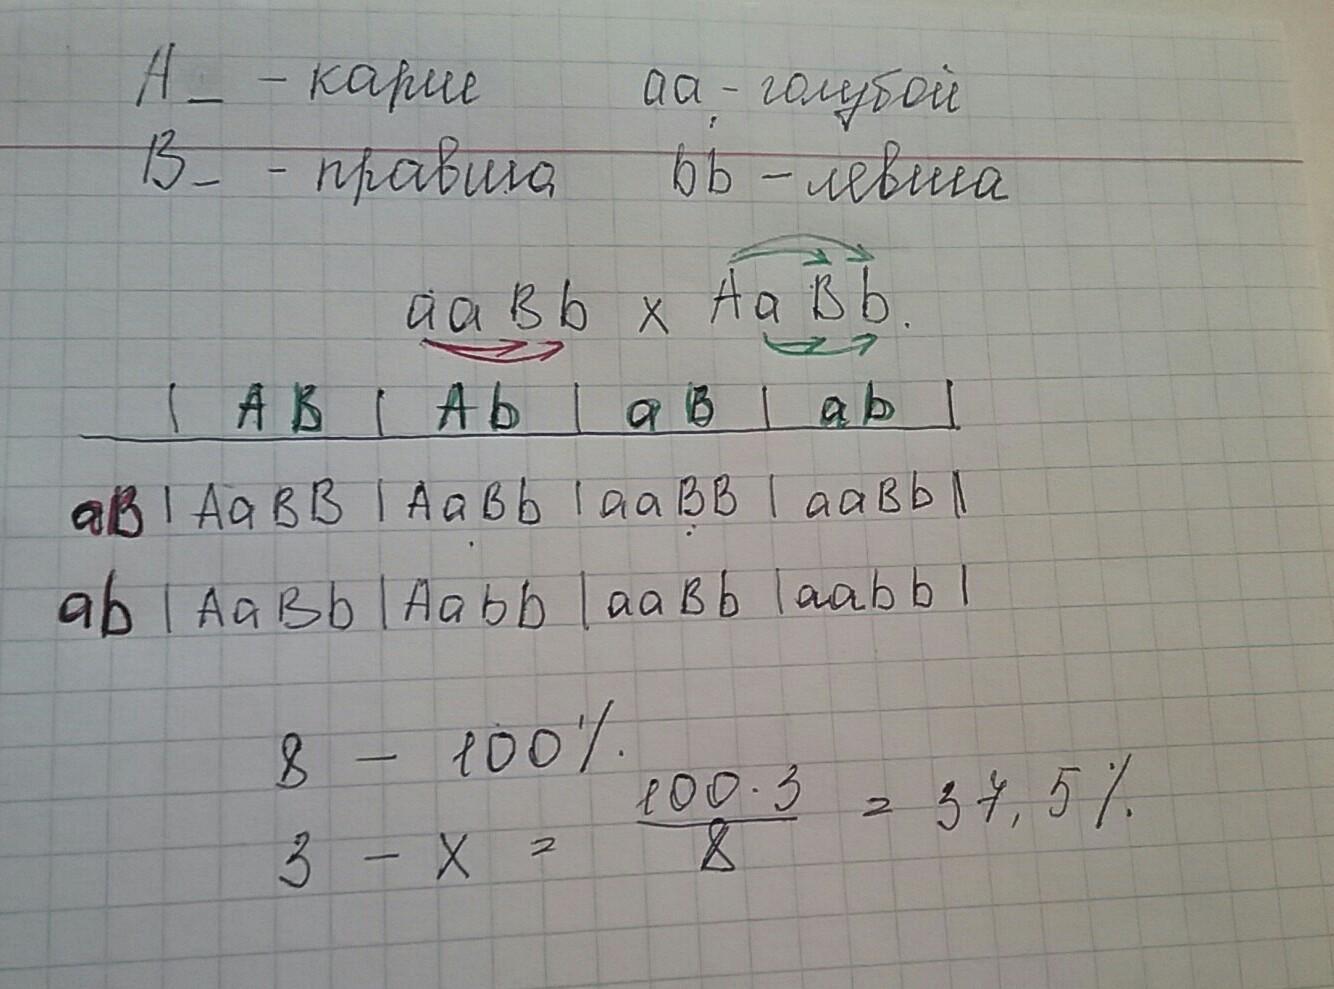 A_ - карие aa - голубой
B_ - правша bb - левша
aaBb x AaBb.
| AB | Ab | aB | ab |
aB | AaBB | AaBb | aaBB | aaBb |
ab | AaBb | Aabb | aaBb | aabb |
8 - 100%.
3 - x = 100·3/8 = 37,5%.